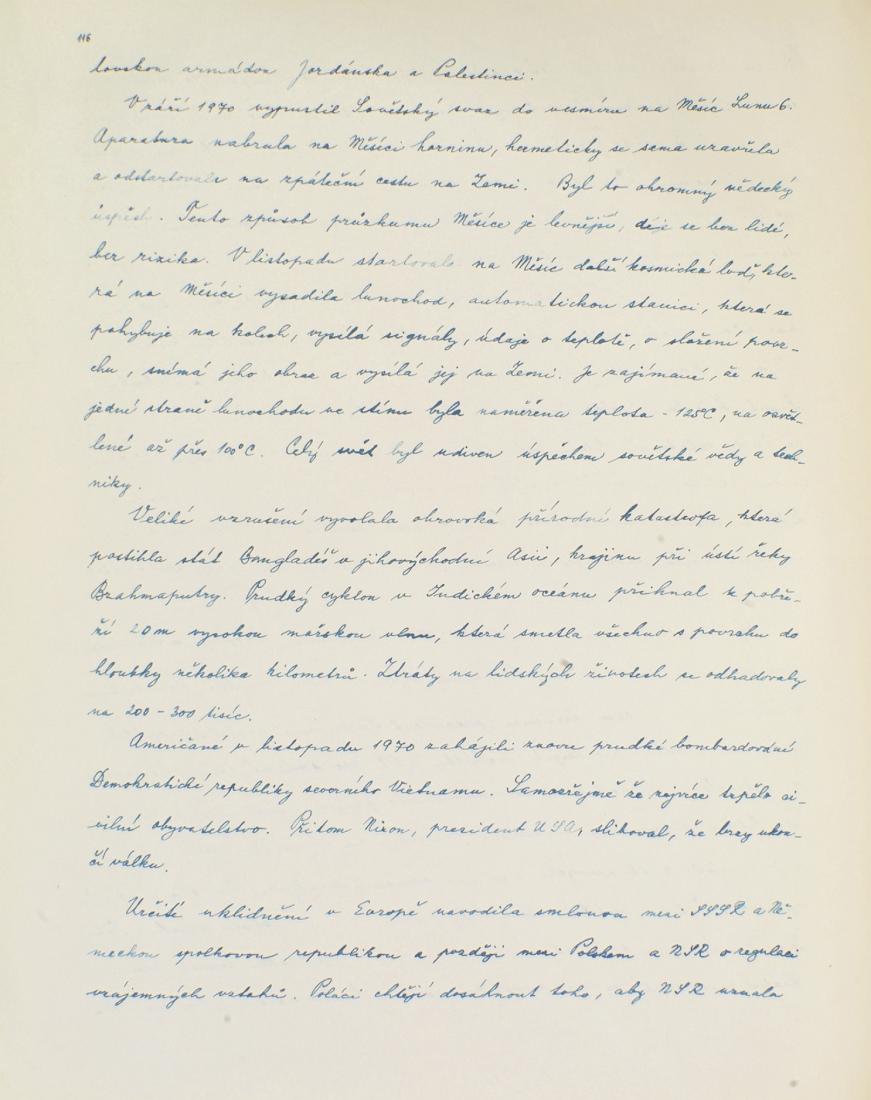 116
lovskou armádou Jordánska a Palestinci.
V září 1970 vypustil Sovětský svaz do vesmíru na Měsíc Lunu 6.
Aparatura nabrala na Měsíci horninu, hermeticky se sama uzavřela
a odstartovala na zpáteční cestu na Zemi. Byl to ohromný vědecký
úspěch. Tento způsob průzkumu Měsíce je levnější, děje se bez lidí,
bez rizika. V listopadu startovala na Měsíc další kosmická loď, kte-
rá na Měsíci vysadila lunochod, automatickou stanici, která se
pohybuje na kolech, vysílá signály, údaje o teplotě, o složení povr-
chu, snímá jeho obraz a vysílá jej na Zemi. Je zajímavé, že na
jedné straně lunochodu ve stínu byla naměřena teplota - 125°C, na osvět-
lené až přes 100°C. Celý svět byl udiven úspěchem sovětské vědy a tech-
niky.
Veliké vzrušení vyvolala obrovská přírodní katastrofa, která
postihla stát Bangladéš v jihovýchodní Asii, krajinu při ústí řeky
Brahmaputry. Prudký cyklon v Indickém oceánu přihnal k pobře-
ží 20 m vysokou mořskou vlnu, která smetla všechno s povrchu do
hloubky několika kilometrů. Ztráty na lidských životech se odhadovaly
na 200 - 300 tisíc.
Američané v listopadu 1970 zahájili znovu prudké bombardování
Demokratické republiky severního Vietnamu. Samozřejmě že nejvíce trpělo ci-
vilní obyvatelstvo. Přitom Nixon, president USA, sliboval, že brzy ukon-
čí válku.
Určité uklidnění v Evropě navodila smlouva mezi SSSR a Ně-
meckou spolkovou republikou a později mezi Polskem a NSR o regulaci
vzájemných vztahů. Poláci chtějí dosáhnout toho, aby NSR uznala